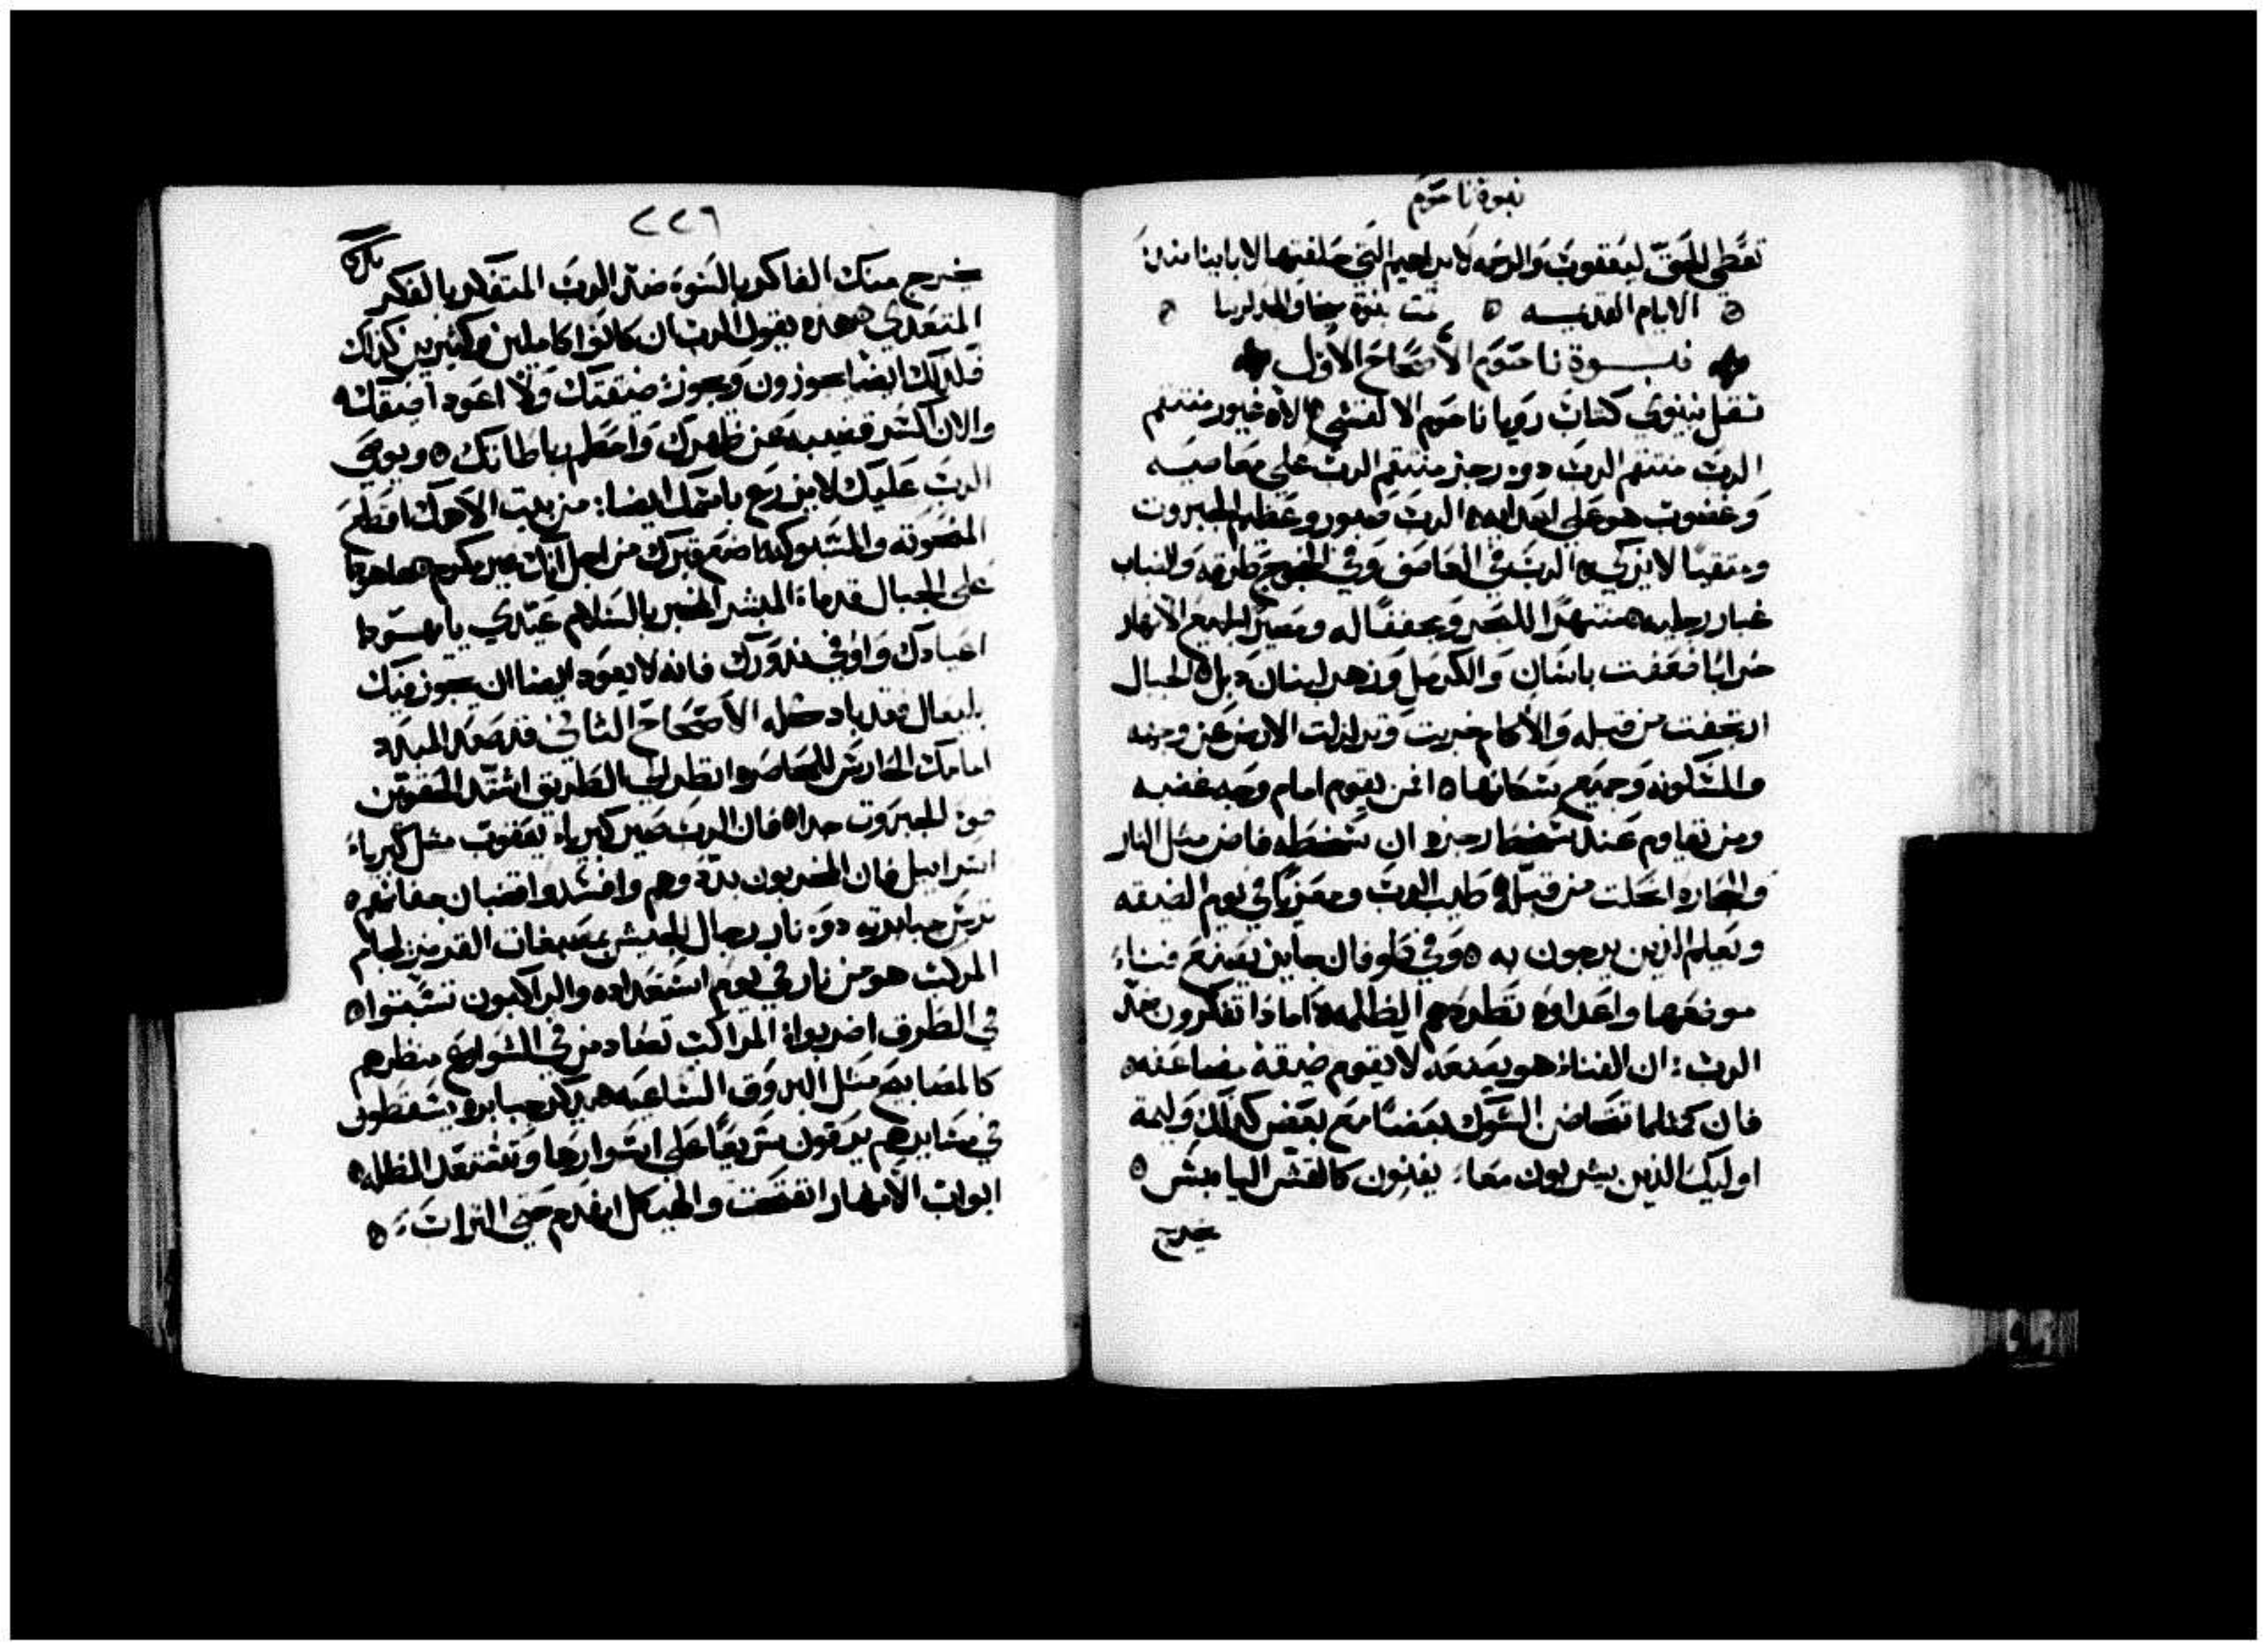 نبوة ناحوم
تعطي الحق ليعقوب والرحمه لابراهيم التي حلفتها لاباينا منذ
الايام القديمه ه تمت نبوة ميخا والمجد لربنا
نبوة ناحوم الأصحاح الأول
ثقل نينوي كتاب رويا ناحوم الالقشي ه الاه غيور منتقم
الرب منتقم الرب ذوه رجز منتقم الرب علي معاصيه
وغضوب هو علي اعدايه ه الرب صبور وعظيم الجبروت
ومتقيا لا يزكي ه الرب في العاصف وفي طرقه والضباب
غبار رجليه ه منتهرًا للبحر ومجففًا له ومصيرًا لجميع الانهار
خرابًا ضعفت باسان والكرمل وزهر لبنان دبل ه الجبال
ارتجفت من قبله والأكام خربت وتزلزلت الارض عن وجهه
والمسكونه وجميع سكانها ه افمن يقوم امام وجه غضبه
ومن يقاوم عند سخط رجزه ان سخطه فاض مثل النار
والحجاره انحلت من قبله ه طيب الرب ومعزيًا في يوم الضيقه
ويعلم الذين يرجون به ه وفي طوفان جايز يصنع فناء
موضعها واعداوه تطردهم الظلمه ه اماذا تفكرون ضد
الرب: ان الفناء هو يصنعه لا يقوم ضيقة مضاعفه ه
فان كمثلما تتضاض الشوك بعضًا مع بعض كذلك وليمة
اوليك الذين يشربون معا، يفنون كالقش اليابس ه
يخرج
٢٢٦
يخرج منك الفاكر بالسوء ضد الرب المتفكر بالفكر
المتعدي ه هذه يقول الرب ان كانوا كاملين وكثيرين كذلك
فلذلك ايضا يجوزون ويجوز ضيقتك ولا اعود اضيقك ه
والان اكسر قضيبه عن ظهرك واحطم رباطاتك ه ويوصي
الرب عليك لا يزرع باسمك ايضا: من بيت الاهك اقطع
المنحوته والمسبوكه اضع قبرك من اجل انك غير مكرم ه هاهوذا
على الجبال قدماء المبشر المخبر بالسلام عيدي يا يهودا
اعيادك واوفي نذورك فانه لا يعود ايضا ان يجوز فيك
بليعال فقد باد كله الأصحاح الثاني قد صعد المبدد
امامك الحارس المحاصره انظر الي الطريق اشدد الحقوين
قوّ الجبروت جدا ه فان الرب صير كبرياء يعقوب مثل كبرياء
اسراييل فان المخربون بددوهم وافسدوا قضبان جفانهم ه
ترس جبابرته دوه نار رجال الجيش بصبغات القرمز لجام
المركب هو من نار في يوم استعداده والراكبون تشبتوا ه
في الطرق اضربواة المراكب تصادمن في الشوارع منظرهم
كالمصابيح مثل البروق الساعيه ه يذكر جبابره يسقطون
في مسايرهم يرقون سريعًا علي اسوارها وتستعد المظله ه
ابواب الأنهار انفتحت والهيكل انهدم حتي التراب ه